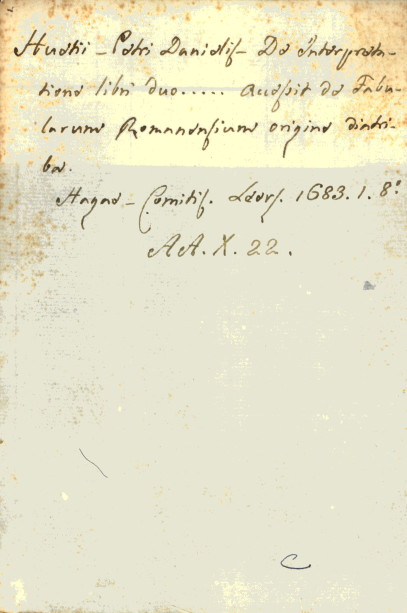 Huetii - Petri Danielis - De Interpreta-
tione libri duo..... accessit de Fabu-
larum Romanensium origine diatri-
ba.
Hagae - Comitis. Leers. 1683. 1. 8º
AA. X. 22.